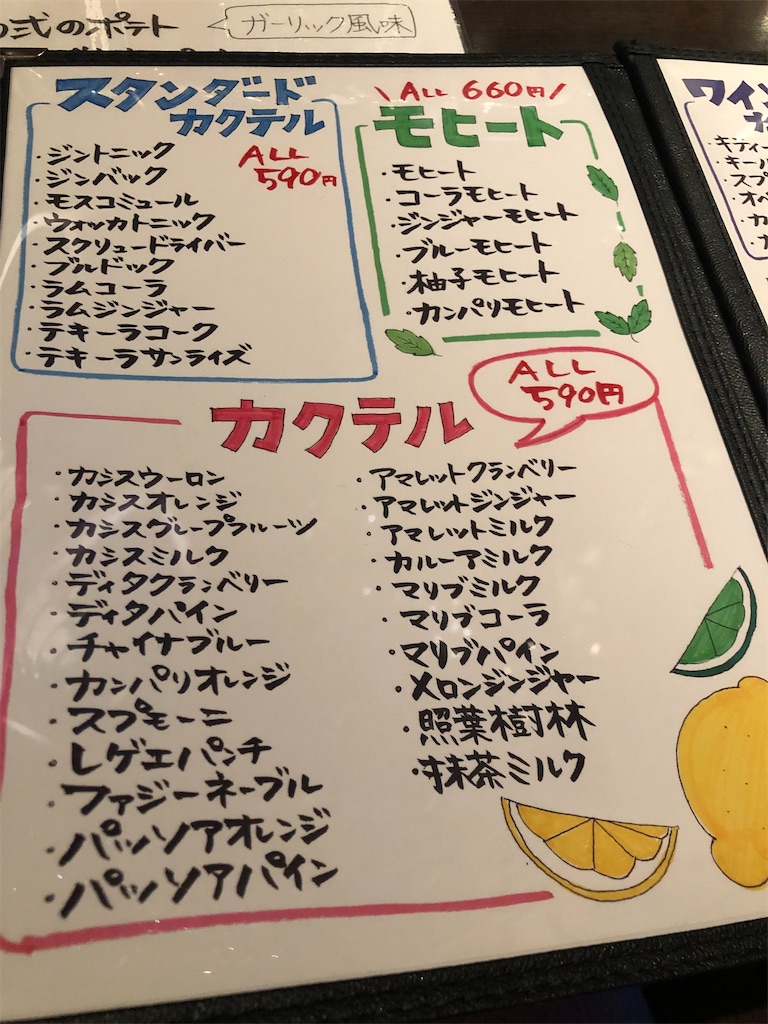 のポテト
ガーリック風味
スタンダード
カクテル
ALL
590円
・ジントニック
・ジンバック
・モスコミュール
・ウォッカトニック
・スクリュードライバー
・ブルドック
・ラムコーラ
・ラムジンジャー
・テキーラコーク
・テキーラサンライズ
\ALL 660円/
モヒート
・モヒート
・コーラモヒート
・ジンジャーモヒート
・ブルーモヒート
・柚子モヒート
・カンパリモヒート
カクテル
ALL
590円
・カシスウーロン
・カシスオレンジ
・カシスグレープフルーツ
・カシスミルク
・ディタクランベリー
・ディタパイン
・チャイナブルー
・カンパリオレンジ
・スプモーニ
・レゲエパンチ
・ファジーネーブル
・パッソアオレンジ
・パッソアパイン
・アマレットクランベリー
・アマレットジンジャー
・アマレットミルク
・カルーアミルク
・マリブミルク
・マリブコーラ
・マリブパイン
・メロンジンジャー
・照葉樹林
・抹茶ミルク
ワイン
・キティ
・キール
・スプ
・オペ
・カ